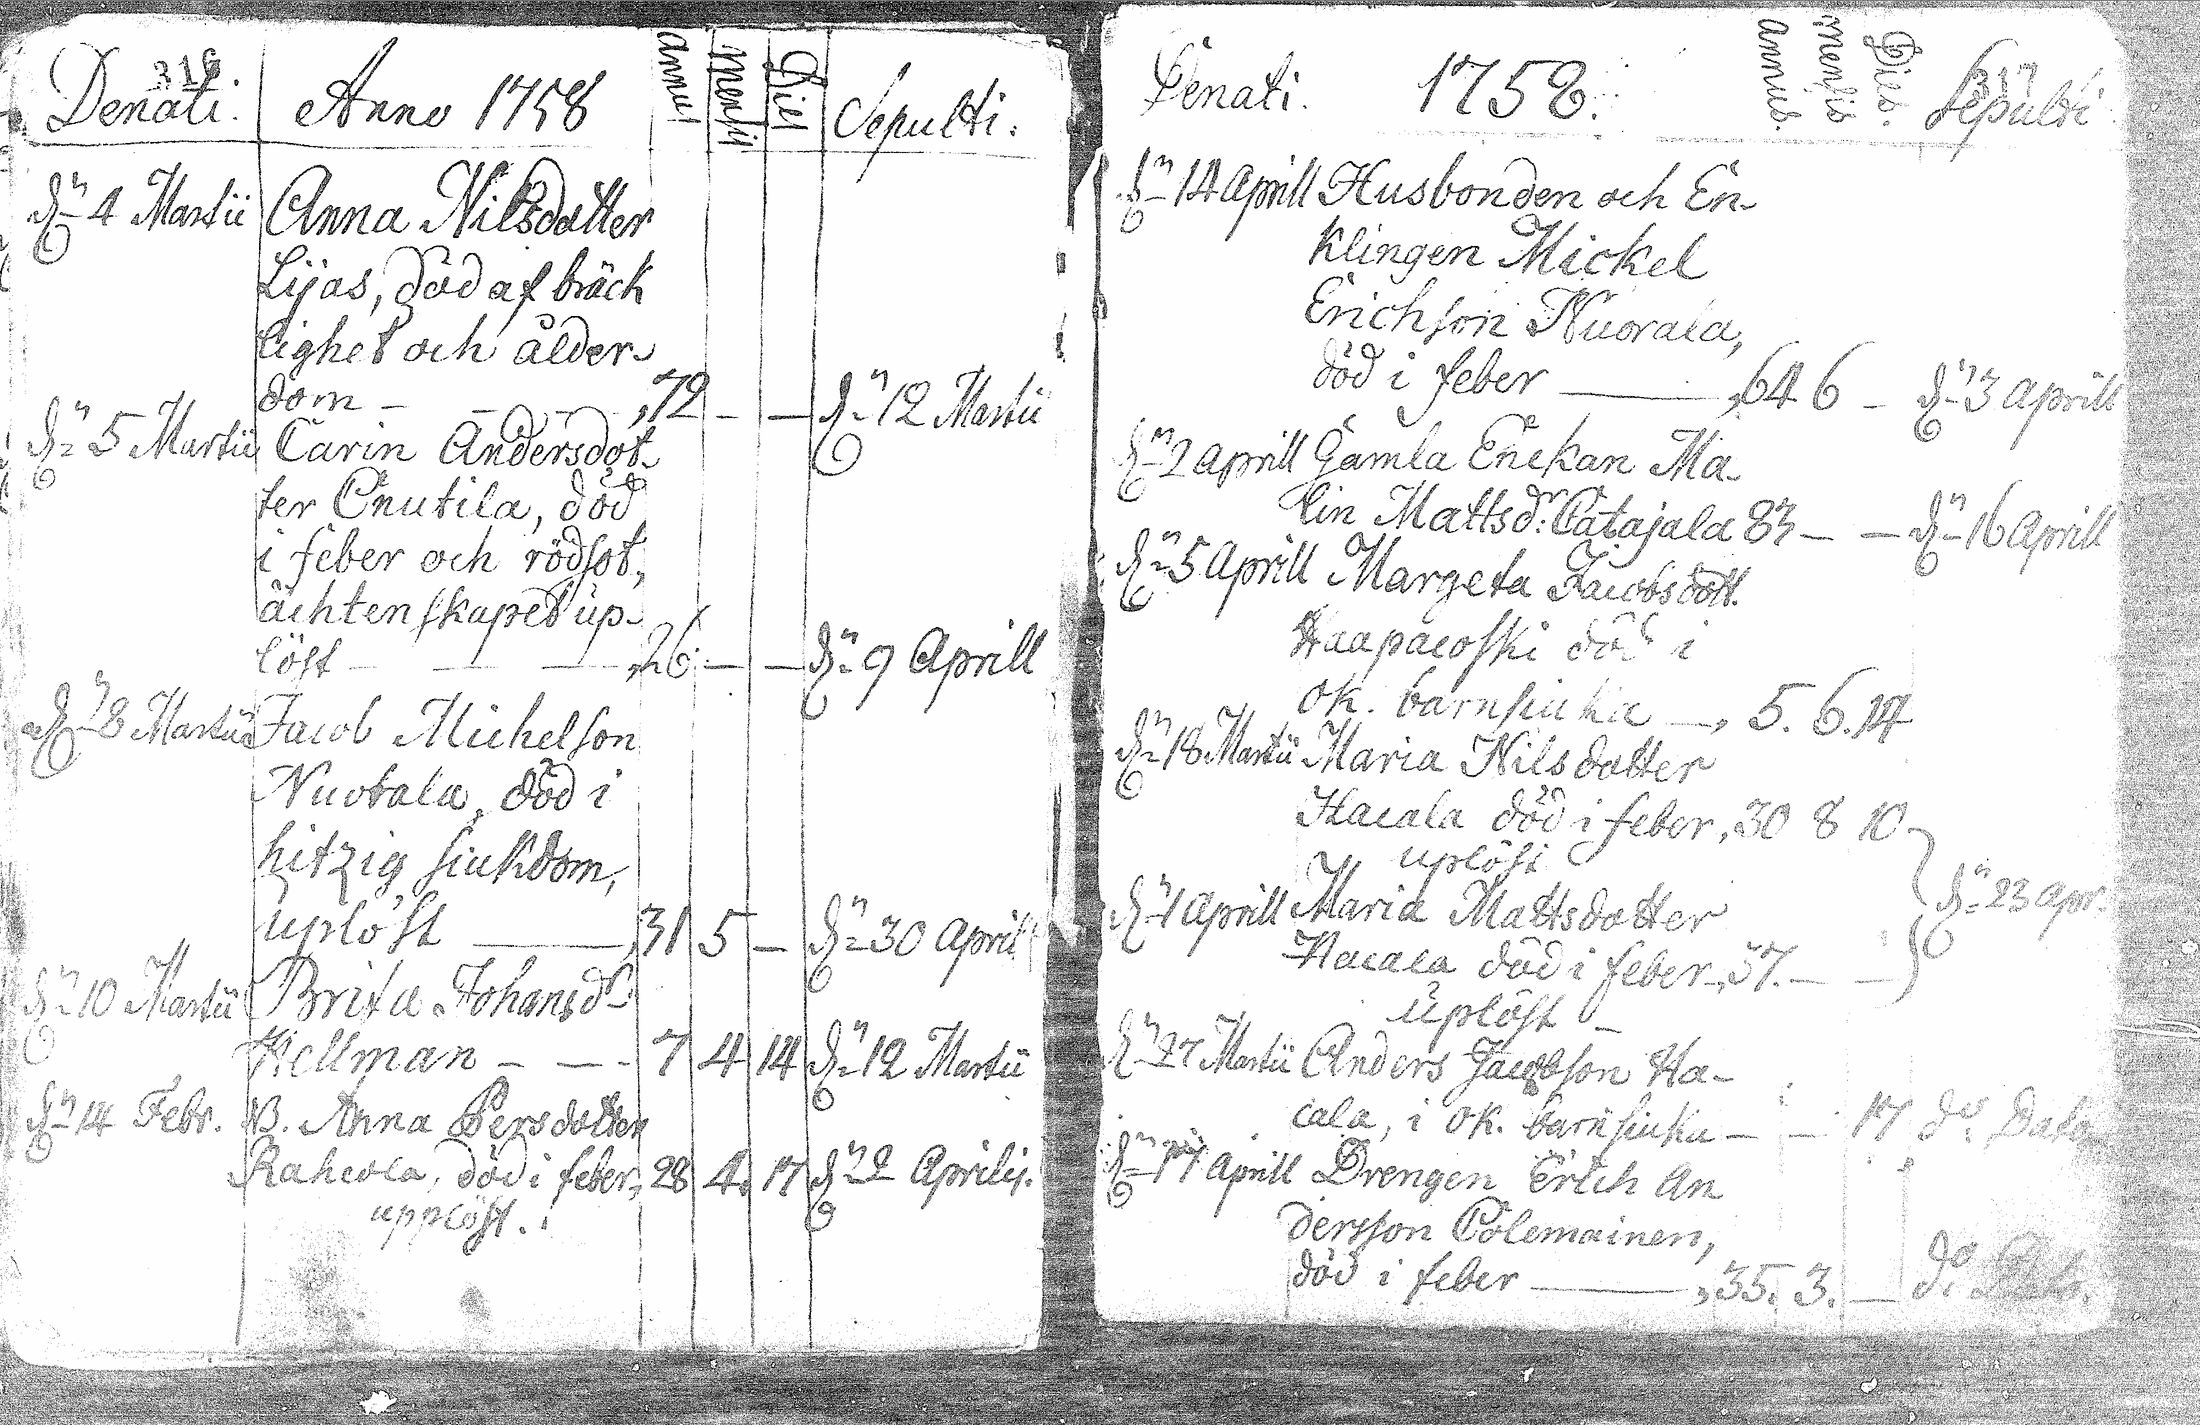 316.
Denati. Anno 1758 annus mensis Dies Sepulti.
dn 4 Martii Anna Nilsdotter
Lijas, död af bräck
lighet och ålder-
dom - - - - , 72 - - dn 12 Martii
dn 5 Martii Carin Andersdot-
ter Cnutila, död
i feber och rödsot,
ächtenskapet up-
löst - - - , 26. - - dn 9 Aprill
dn 8 Martii Jacob Michelson
Nuotala, död i
hitzig siukdom,
uplöst - , 31 5 - dn 30 April
dn 10 Martii Brita Johansdr
Hellman - - - 7 4 14 dn 12 Martii
dn 14 Febr. NB. Anna Persdotter
Rahcola, död i feber, 28 4. 17 dn 2 Aprilis.
upplöst.
317
Denati. 1758. annus. mensis Dies. Sepulti
dn 14 Aprill Husbonden och En-
klingen Mickel
Erichson Nuorala,
död i feber - , 64 6 - dn 3 Aprill
dn 2 Aprill Gamla Enckan Ma-
lin Mattsdr: Catajala 83 - - dn 16 Aprill
dn 5 Aprill Margeta Jacobsdott.
Haapacoski död i
ok. barnsiuka -, 5. 6. 14
dn 18 Martii Maria Nilsdotter
Hacala död i feber, 30 8 10
uplöst dn 23 Apr.
dn 1 Aprill Maria Mattsdotter
Hacala död i feber -, 37. - -
uplöst -
dn 27 Martii Anders Jacobson Ha-
cala, i ok. barnsiuka - - 17 do Dato
dn 17 Aprill Drengen Erich An
dersson Colemainen,
död i feber - , 35. 3. - do